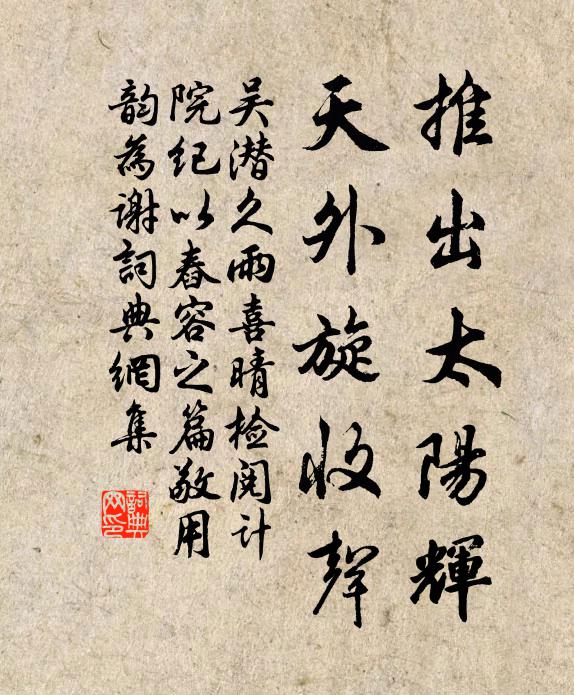 推出太陽輝
天外旋收聲
吴潜久雨喜晴检阅计
院纪以舂容之篇敬用
韵為谢詞典網集
詞典网印